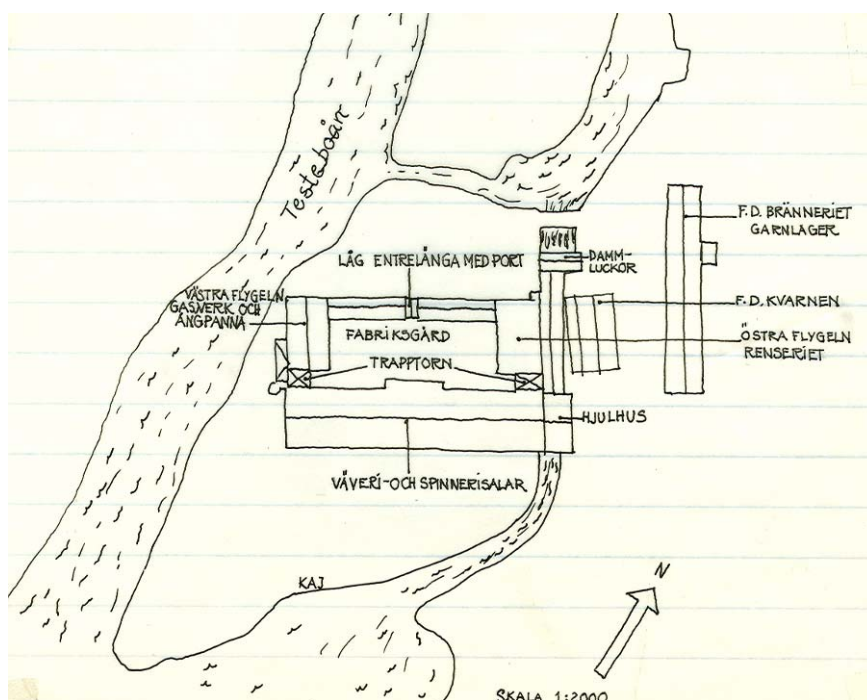 Testeboån
F.D. BRÄNNERIET
GARNLAGER
LÅG ENTRELÄNGA MED PORT
DAMM-
LUCKOR
VÄSTRA FLYGELN
GASVERK OCH
ÅNGPANNA
F.D. KVARNEN
FABRIKSGÅRD
ÖSTRA FLYGELN
RENSERIET
TRAPPTORN
HJULHUS
VÄVERI-OCH SPINNERISALAR
KAJ
N
SKALA 1:2000